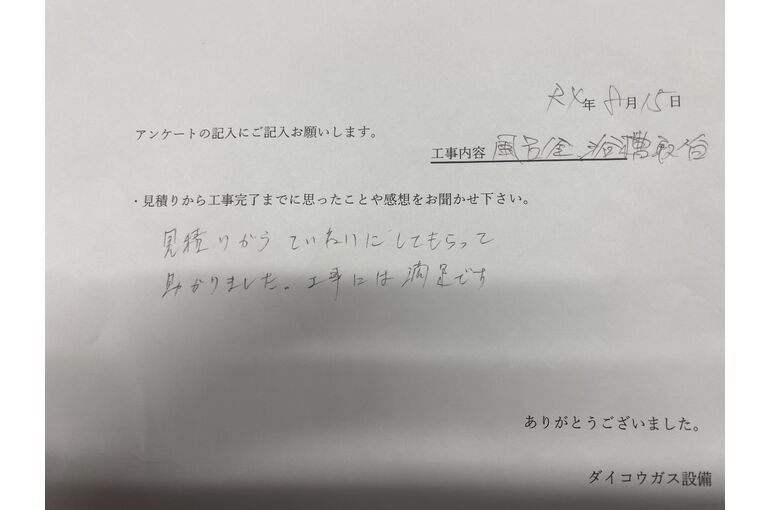 R4年 8月15日
アンケートの記入にご記入お願いします。
工事内容 風呂釜 浴槽取替
・見積りから工事完了までに思ったことや感想をお聞かせ下さい。
見積りからていねいにしてもらって
助かりました。工事には満足です
ありがとうございました。
ダイコウガス設備